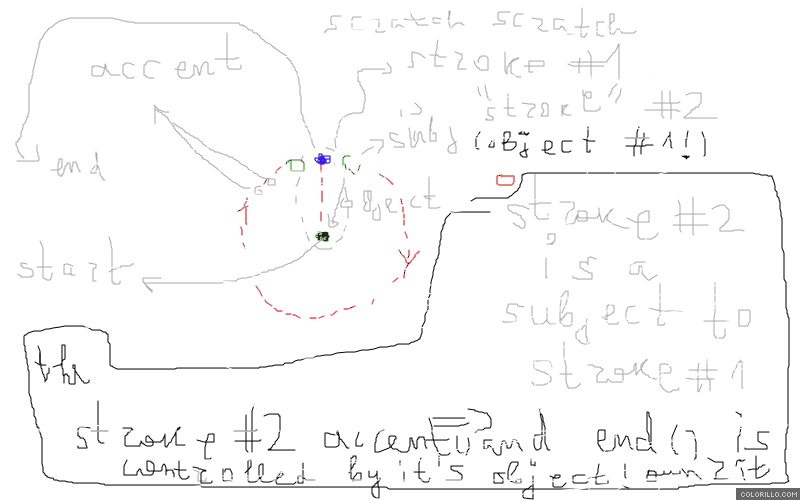 scratch scratch
stroke #1
accent
is
"stroke" #2
subj (object #1!)
end
object
stroke #2
start
is a
subject to
stroke #1
the
stroke #2 accent() and end() is
controlled by it's object
COLORILLO.COM